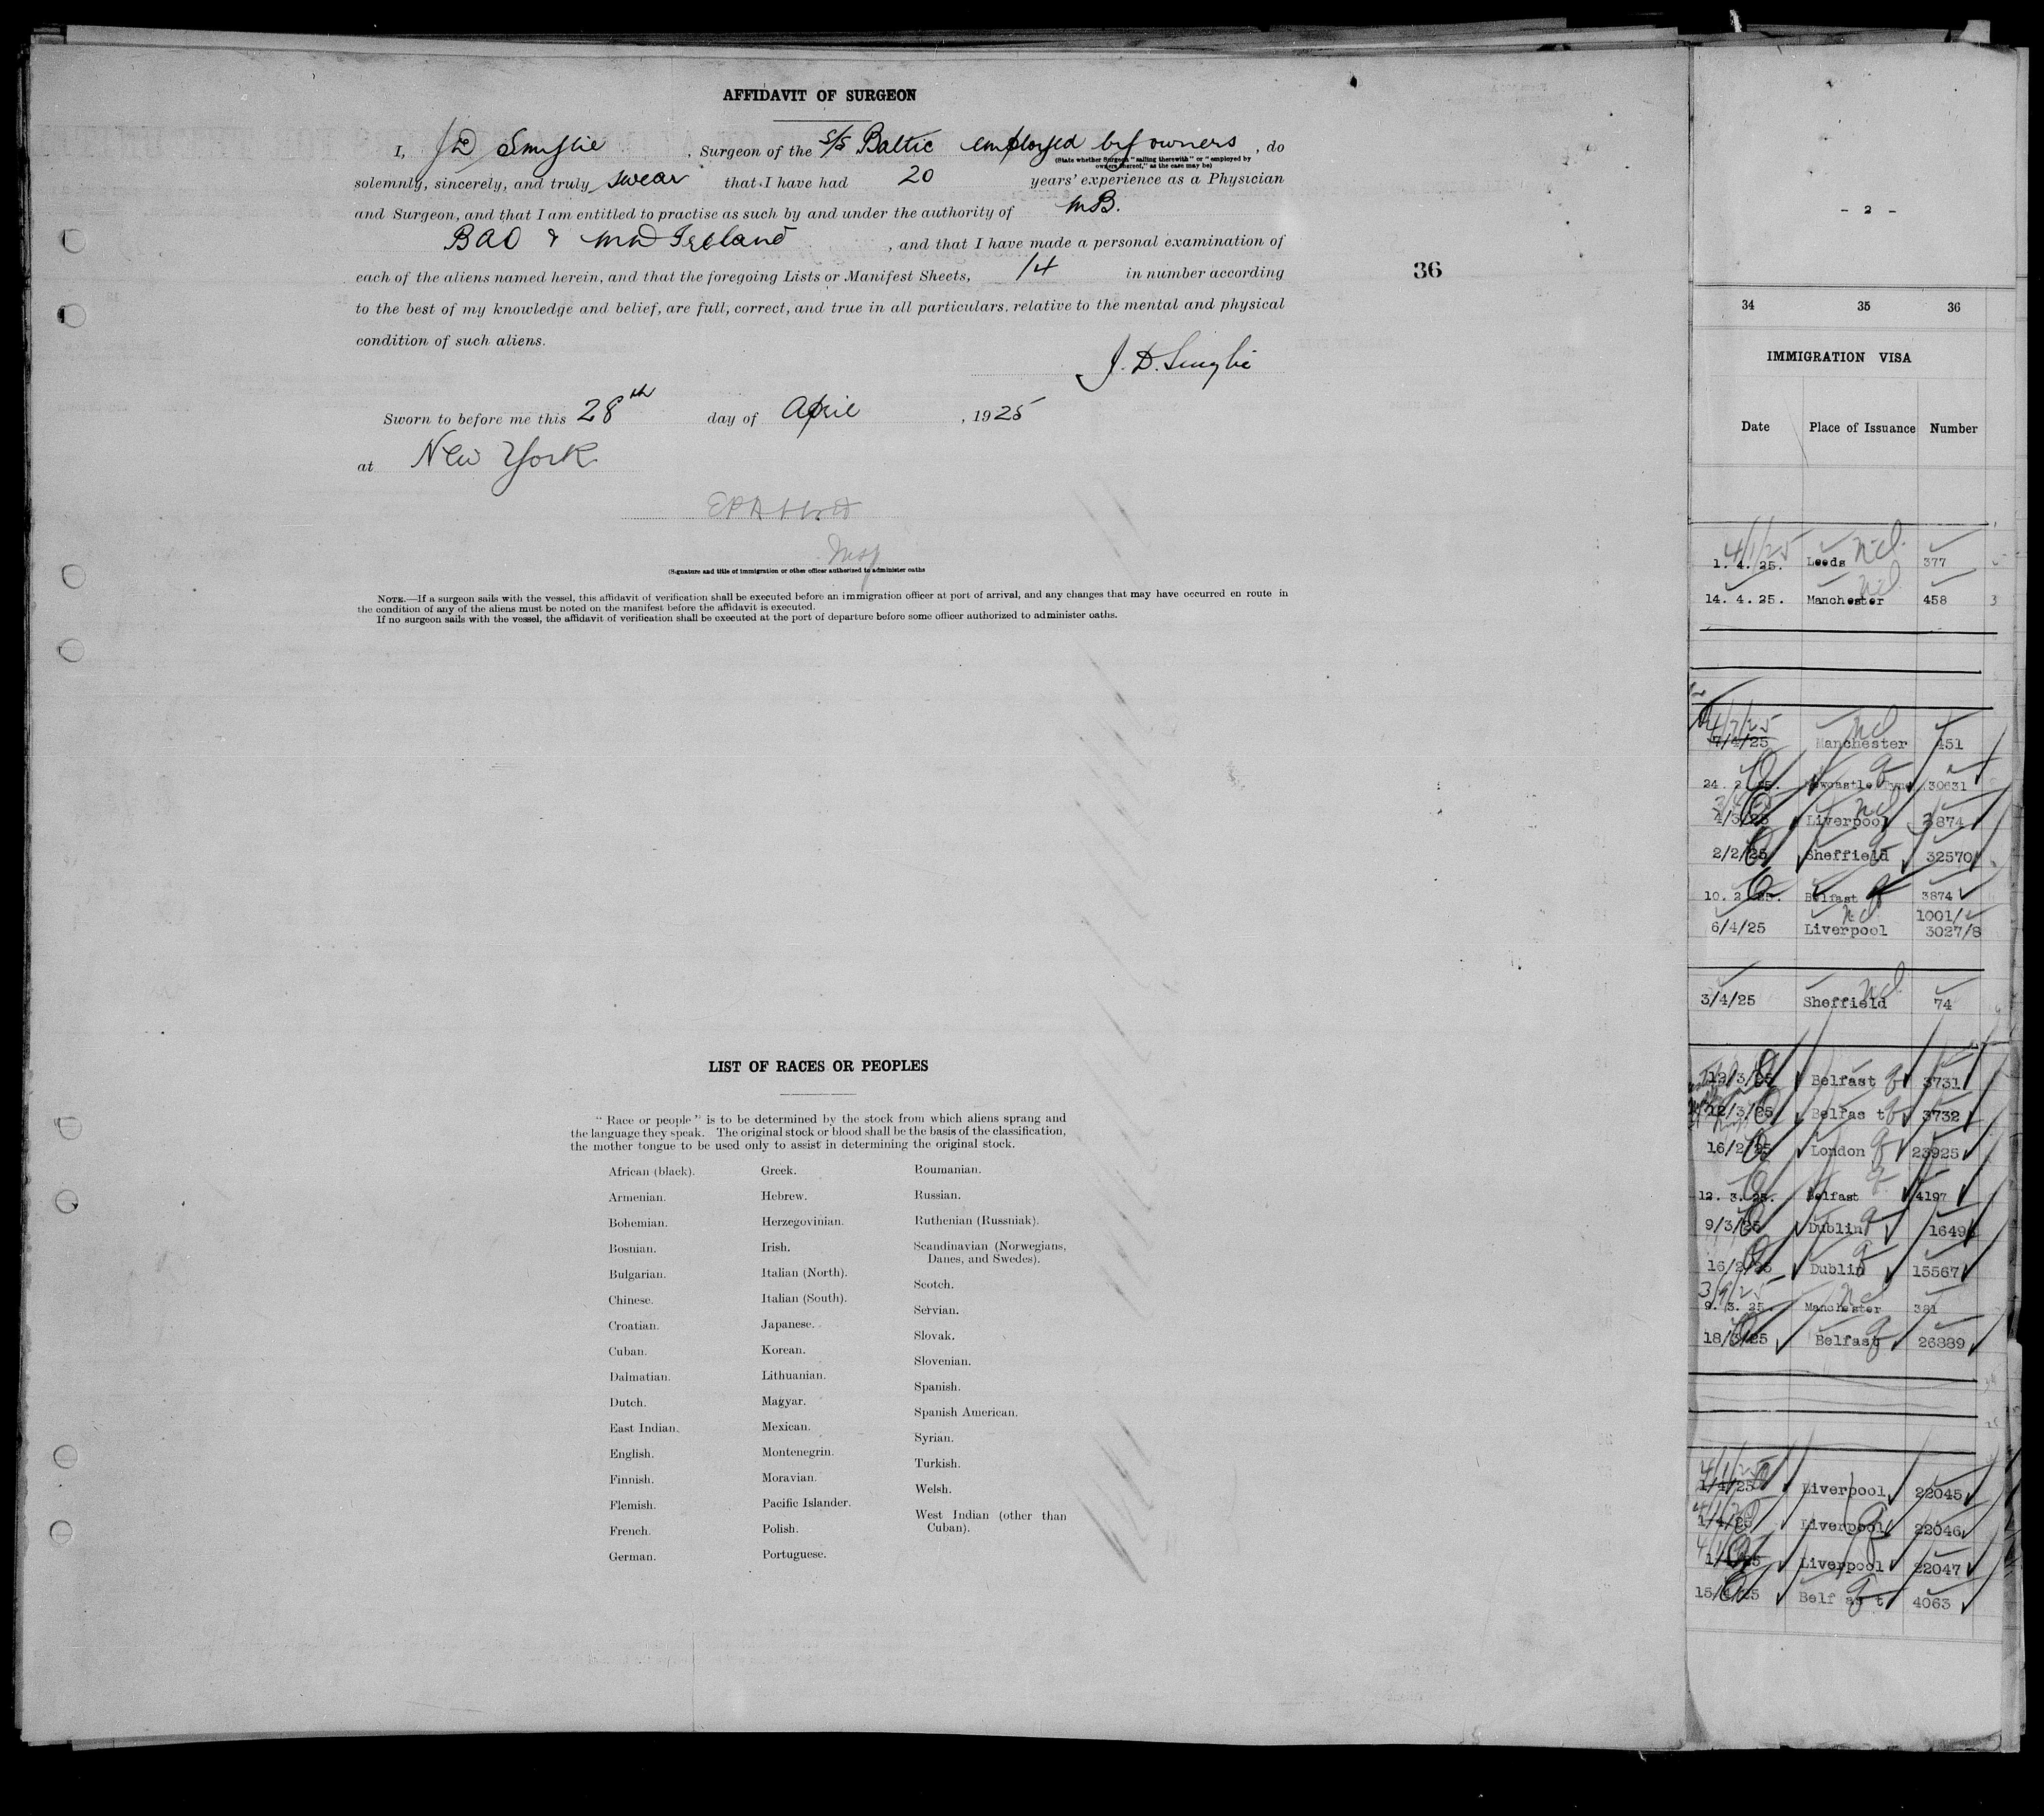 AFFIDAVIT OF SURGEON
I, J D Smylie, Surgeon of the S/S Baltic employed by owners, do
(State whether Surgeon "sailing therewith" or "employed by
owners thereof," as the case may be)
solemnly, sincerely, and truly swear that I have had 20 years' experience as a Physician
and Surgeon, and that I am entitled to practise as such by and under the authority of MB.
BAO & MD Ireland, and that I have made a personal examination of
each of the aliens named herein, and that the foregoing Lists or Manifest Sheets, 14 in number according
to the best of my knowledge and belief, are full, correct, and true in all particulars, relative to the mental and physical
condition of such aliens.
J. D. Smylie
Sworn to before me this 28th day of April, 1925
at New York
Insp
(Signature and title of immigration or other officer authorized to administer oaths
NOTE.—If a surgeon sails with the vessel, this affidavit of verification shall be executed before an immigration officer at port of arrival, and any changes that may have occurred en route in
the condition of any of the aliens must be noted on the manifest before the affidavit is executed.
If no surgeon sails with the vessel, the affidavit of verification shall be executed at the port of departure before some officer authorized to administer oaths.
36
LIST OF RACES OR PEOPLES
"Race or people" is to be determined by the stock from which aliens sprang and
the language they speak. The original stock or blood shall be the basis of the classification,
the mother tongue to be used only to assist in determining the original stock.
African (black).
Armenian.
Bohemian.
Bosnian.
Bulgarian.
Chinese.
Croatian.
Cuban.
Dalmatian.
Dutch.
East Indian.
English.
Finnish.
Flemish.
French.
German.
Greek.
Hebrew.
Herzegovinian.
Irish.
Italian (North).
Italian (South).
Japanese.
Korean.
Lithuanian.
Magyar.
Mexican.
Montenegrin.
Moravian.
Pacific Islander.
Polish.
Portuguese.
Roumanian.
Russian.
Ruthenian (Russniak).
Scandinavian (Norwegians,
Danes, and Swedes).
Scotch.
Servian.
Slovak.
Slovenian.
Spanish.
Spanish American.
Syrian.
Turkish.
Welsh.
West Indian (other than
Cuban).
- 2 -
34 35 36
IMMIGRATION VISA
Date Place of Issuance Number
4/1/25
1. 4. 25. Leeds 377
14. 4. 25. Manchester 458 3
4/7/25
7/4/25 Manchester 451
24. 2. 25. Newcastle Tyne 30631
4/3/25 Liverpool 3874
2/2/25 Sheffield 32570
10. 2. 25. Belfast 3874
1001/
6/4/25 Liverpool 3027/8
3/4/25 Sheffield 74
12/3/25 Belfast 3731
12/3/25 Belfas t 3732
16/2/25 London 23925
12. 3. 25. Belfast 4197
9/3/25 Dublin 1649
16/2/25 Dublin 15567
3/9/25
9. 3. 25. Manchester 381
18/3/25 Belfast 26889
4/1/25
1/4/25 Liverpool 22045
1/4/25 Liverpool 22046
1/4/25 Liverpool 22047
15/4/25 Belf as t 4063